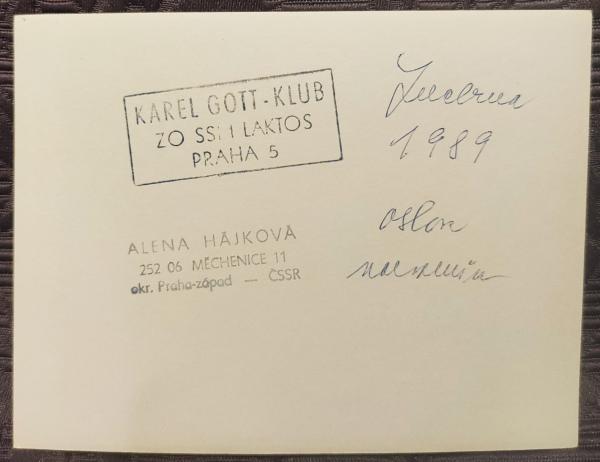 KAREL GOTT - KLUB
ZO SSM LAKTOS
PRAHA 5
Lucerna
1989
oslava
ALENA HÁJKOVÁ
252 06 MĚCHENICE 11
okr. Praha-západ — ČSSR